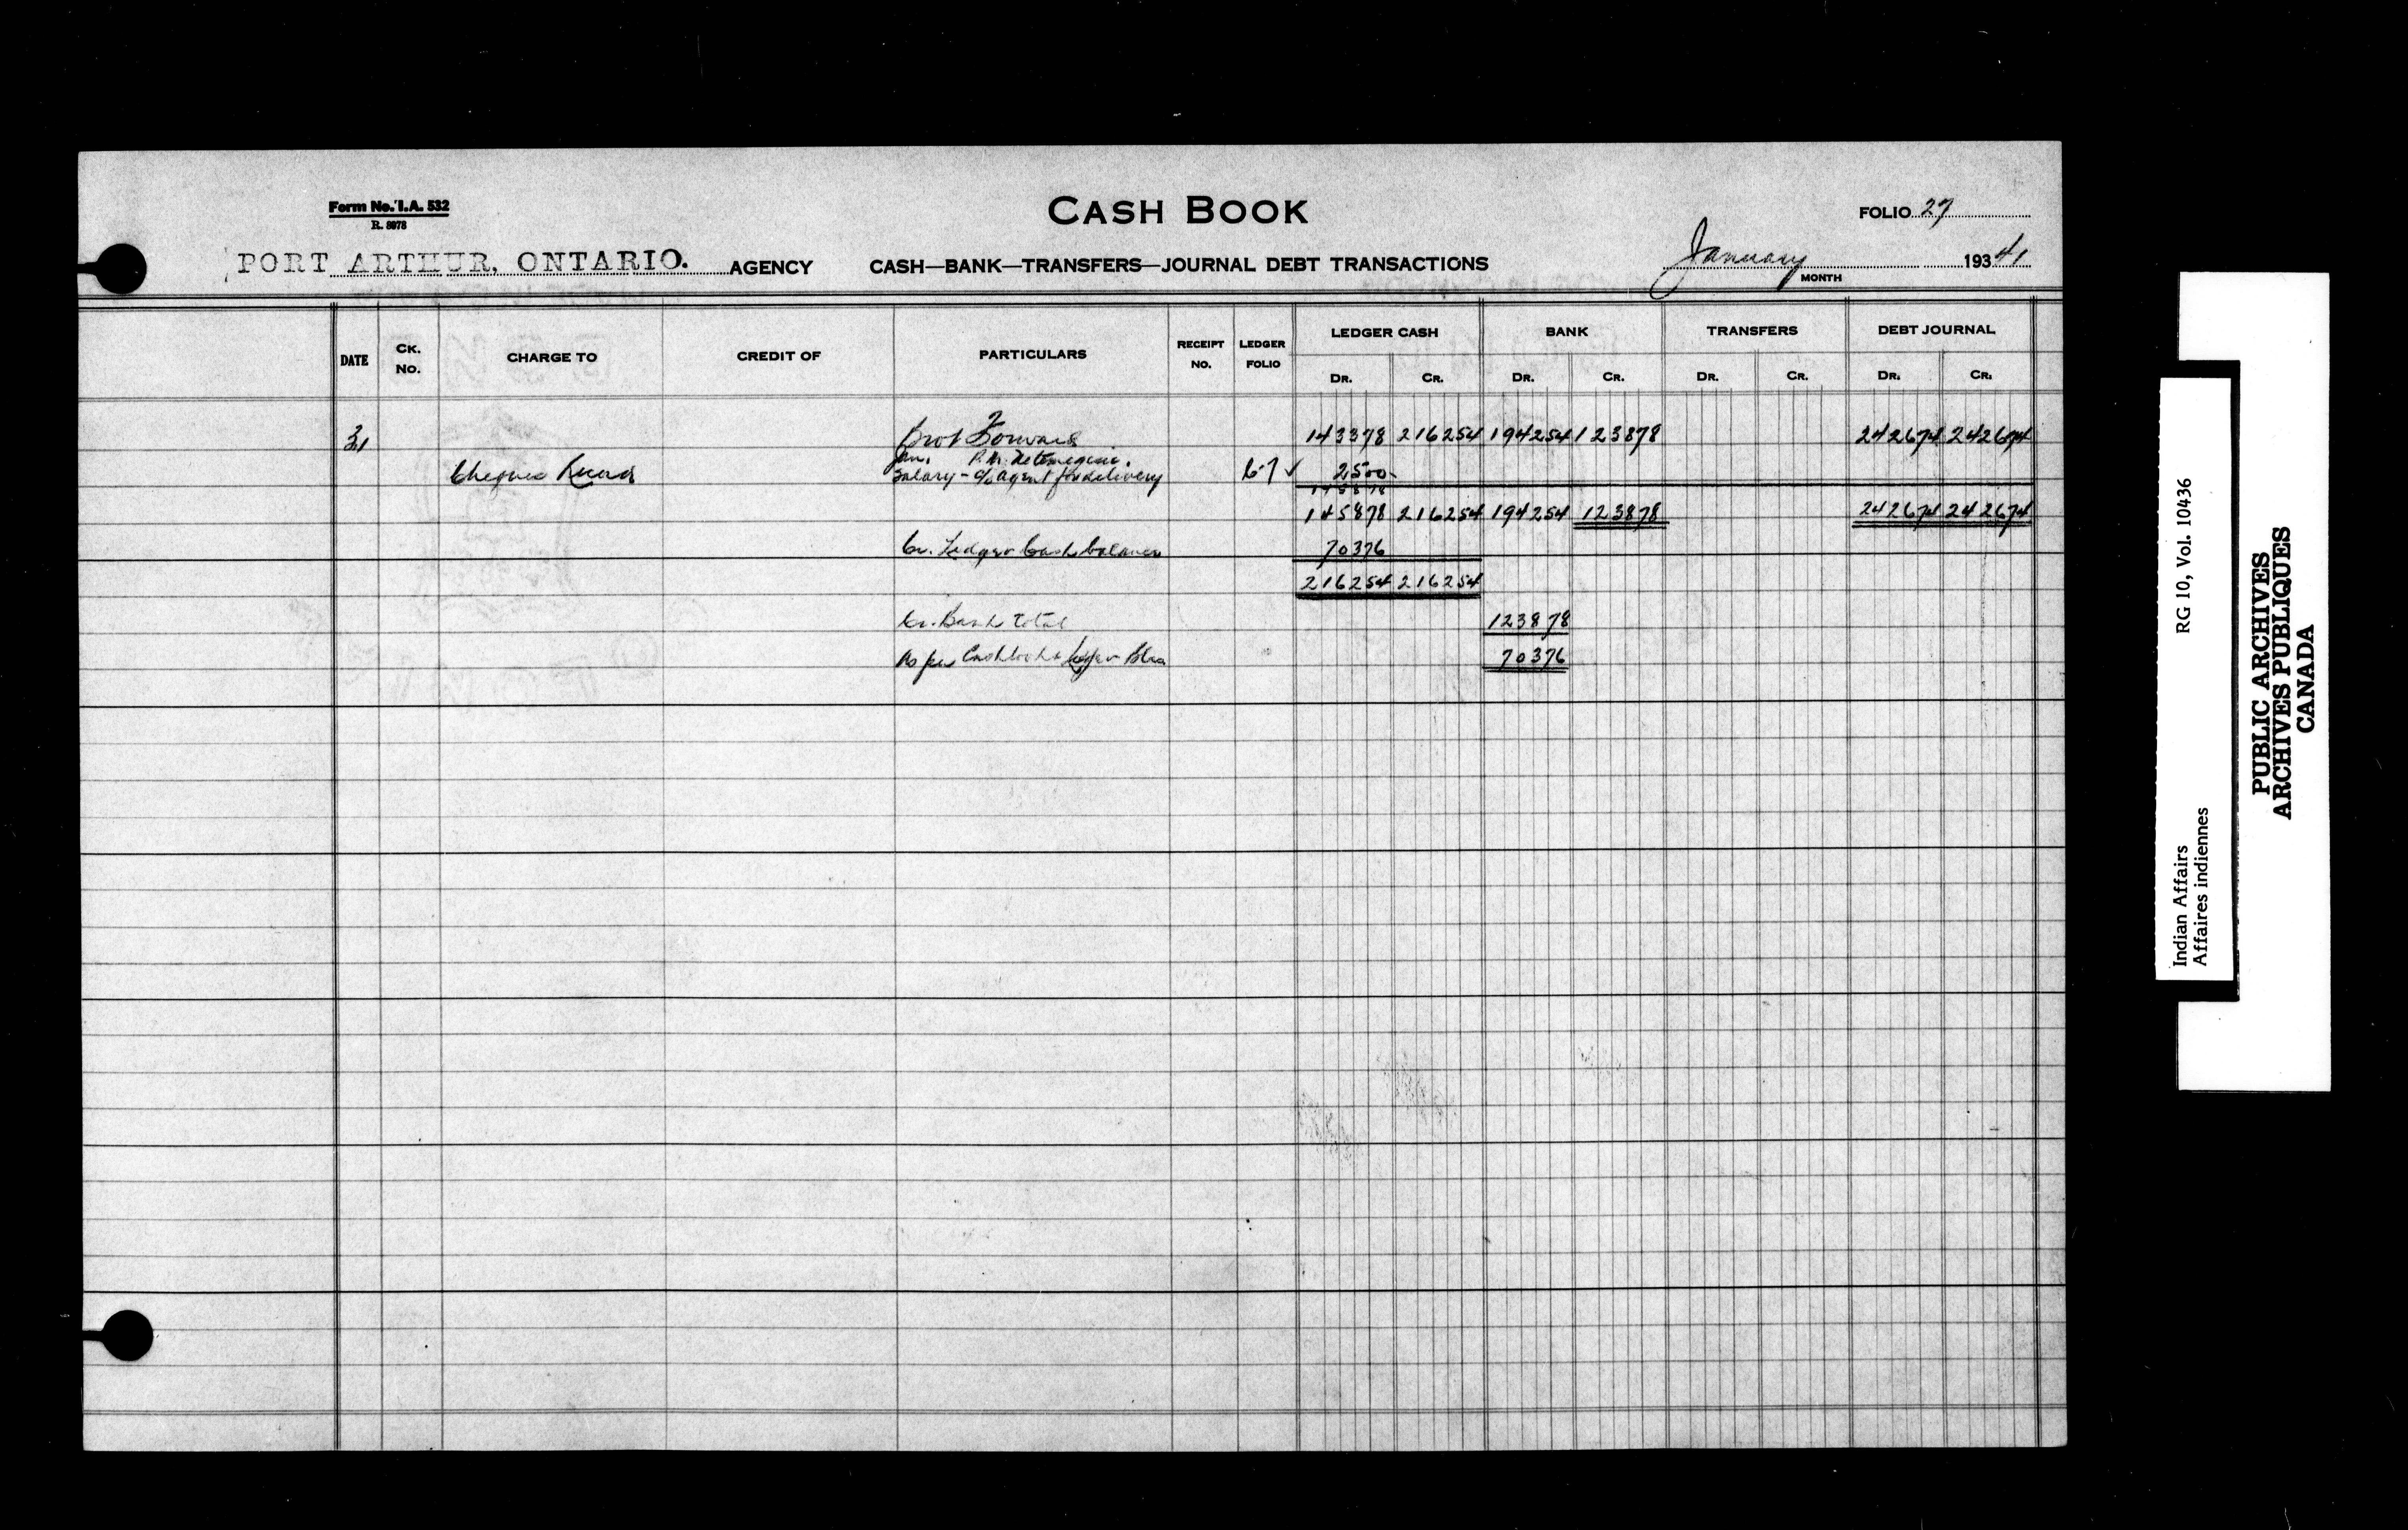 Form No. I.A. 532
R. 8978
CASH BOOK
FOLIO 27
PORT ARTHUR, ONTARIO. AGENCY
CASH—BANK—TRANSFERS—JOURNAL DEBT TRANSACTIONS
January MONTH 193 41
DATE CK. No. CHARGE TO CREDIT OF PARTICULARS RECEIPT No. LEDGER FOLIO LEDGER CASH BANK TRANSFERS DEBT JOURNAL
DR. CR. DR. CR. DR. CR. DR. CR.
31 Brot Forward 143378 216254 194254 123878 242674 242674
Jan. P.M.
Cheques Salary - c/o agent for delivery 67 ✓ 2500
145878
145878 216254 194254 123878 242674 242674
Cr. Ledger Cash balance 70376
216254 216254
Cr. Bank total 123878
As per Cashbook & 70376
RG 10, Vol. 10436
Indian Affairs
Affaires indiennes
PUBLIC ARCHIVES
ARCHIVES PUBLIQUES
CANADA